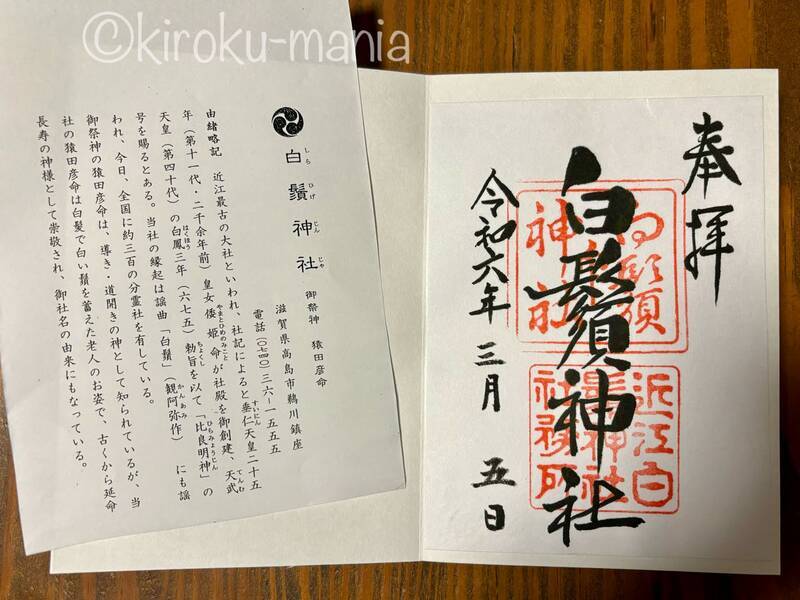 ©kiroku-mania
しらひげじんじゃ
白鬚神社 御祭神 猿田彦命
滋賀県高島市鵜川鎮座
電話(〇七四〇)三六-一五五五
すいにん
由緒略記 近江最古の大社といわれ、社記によると垂仁天皇二十五
やまとひめのみこと てんむ
年(第十一代・二千余年前)皇女倭姫命が社殿を御創建、天武
はくほう ちょくし ひらみょうじん
天皇(第四十代)の白鳳三年(六七五)勅旨を以て「比良明神」の
かんあみ
号を賜るとある。当社の縁起は謡曲「白鬚」(観阿弥作)にも謡
われ、今日、全国に約三百の分霊社を有している。
御祭神の猿田彦命は、導き・道開きの神として知られているが、当
社の猿田彦命は白髪で白い鬚を蓄えた老人のお姿で、古くから延命
長寿の神様として崇敬され、御社名の由来にもなっている。
奉拝
白鬚神社
白鬚神社
近江白
鬚神社
社務所
令和六年三月五日